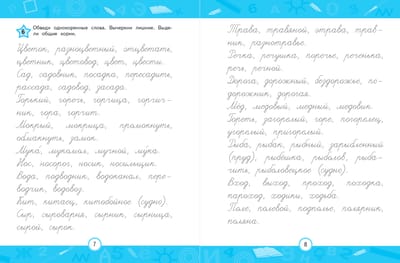 6
Обведи однокоренные слова. Вычеркни лишние. Выде-
ли общие корни.
Цветок, разноцветный, отцветать,
цветник, цветовод, цвет, цвести.
Сад, садовник, посадка, пересадить,
рассада, садовод, засада.
Горький, горечь, горчица, горчич-
ник, гора, горчит.
Мокрый, мокрица, промокнуть,
обмакнуть, замок.
Мука, мукомол, мучной, мука.
Нос, носорог, носик, носильщик.
Вода, подводник, водоканал, пере-
водчик, водовоз.
Кит, китаец, китобойное (судно).
Сыр, сыроварня, сырник, сырница,
сырой, сырок.
7
Трава, травяной, отрава, трав-
ник, разнотравье.
Речка, речушка, поречье, реченька,
речь, речной.
Дорога, дорожный, бездорожье, по-
дорожник, дорогая.
Мёд, медовый, медный, медовик.
Гореть, загорелый, горе, погорелец,
угорелый, пригорелый.
Рыба, рыбак, рыбный, зарыбленный
(пруд), рыбёшка, рыболов, рыба-
чить, рыболовецкое (судно).
Вход, выход, проход, походка,
пароход, ходики, ходьба.
Поле, полевой, подполье, полярник,
поляна.
8